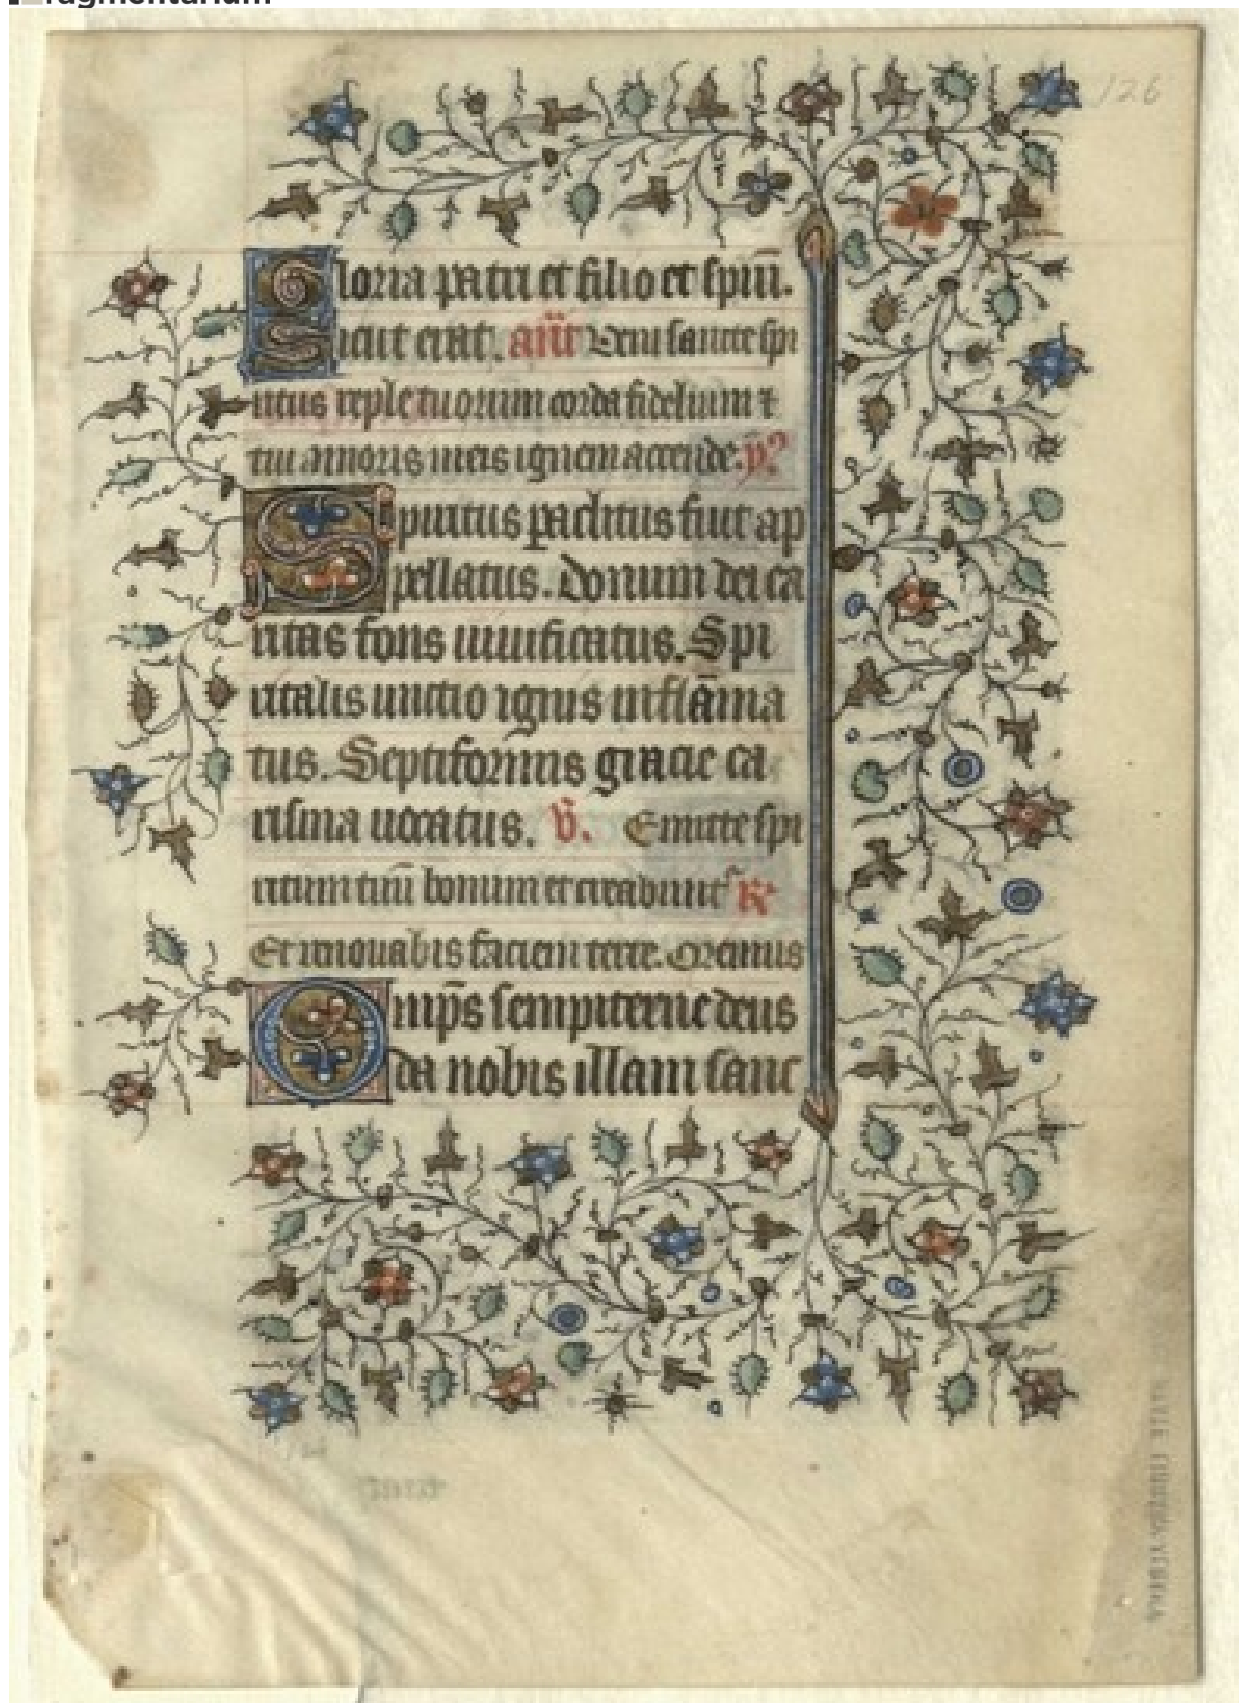 fragmentarium
126
Gloria patri et filio et spiū.
Sicut erat. añt Veni sancte spi
ritus reple tuorum corda fidelium ⁊
tui amoris in eis ignem accende.
Spiritus paclitus fiut ap
pellatus. Donum dei ca
ritas fons uiuificatus. Spi
ritalis unctio ignis inflāma
tus. Septiformis gracie ca
risma uocatus. v̄. Emitte spi
ritum tuū bonum et creabunt᷑ R̄
Et renouabis faciem terre. Oremus
Omp̄s sempiterne deus
da nobis illam sanc